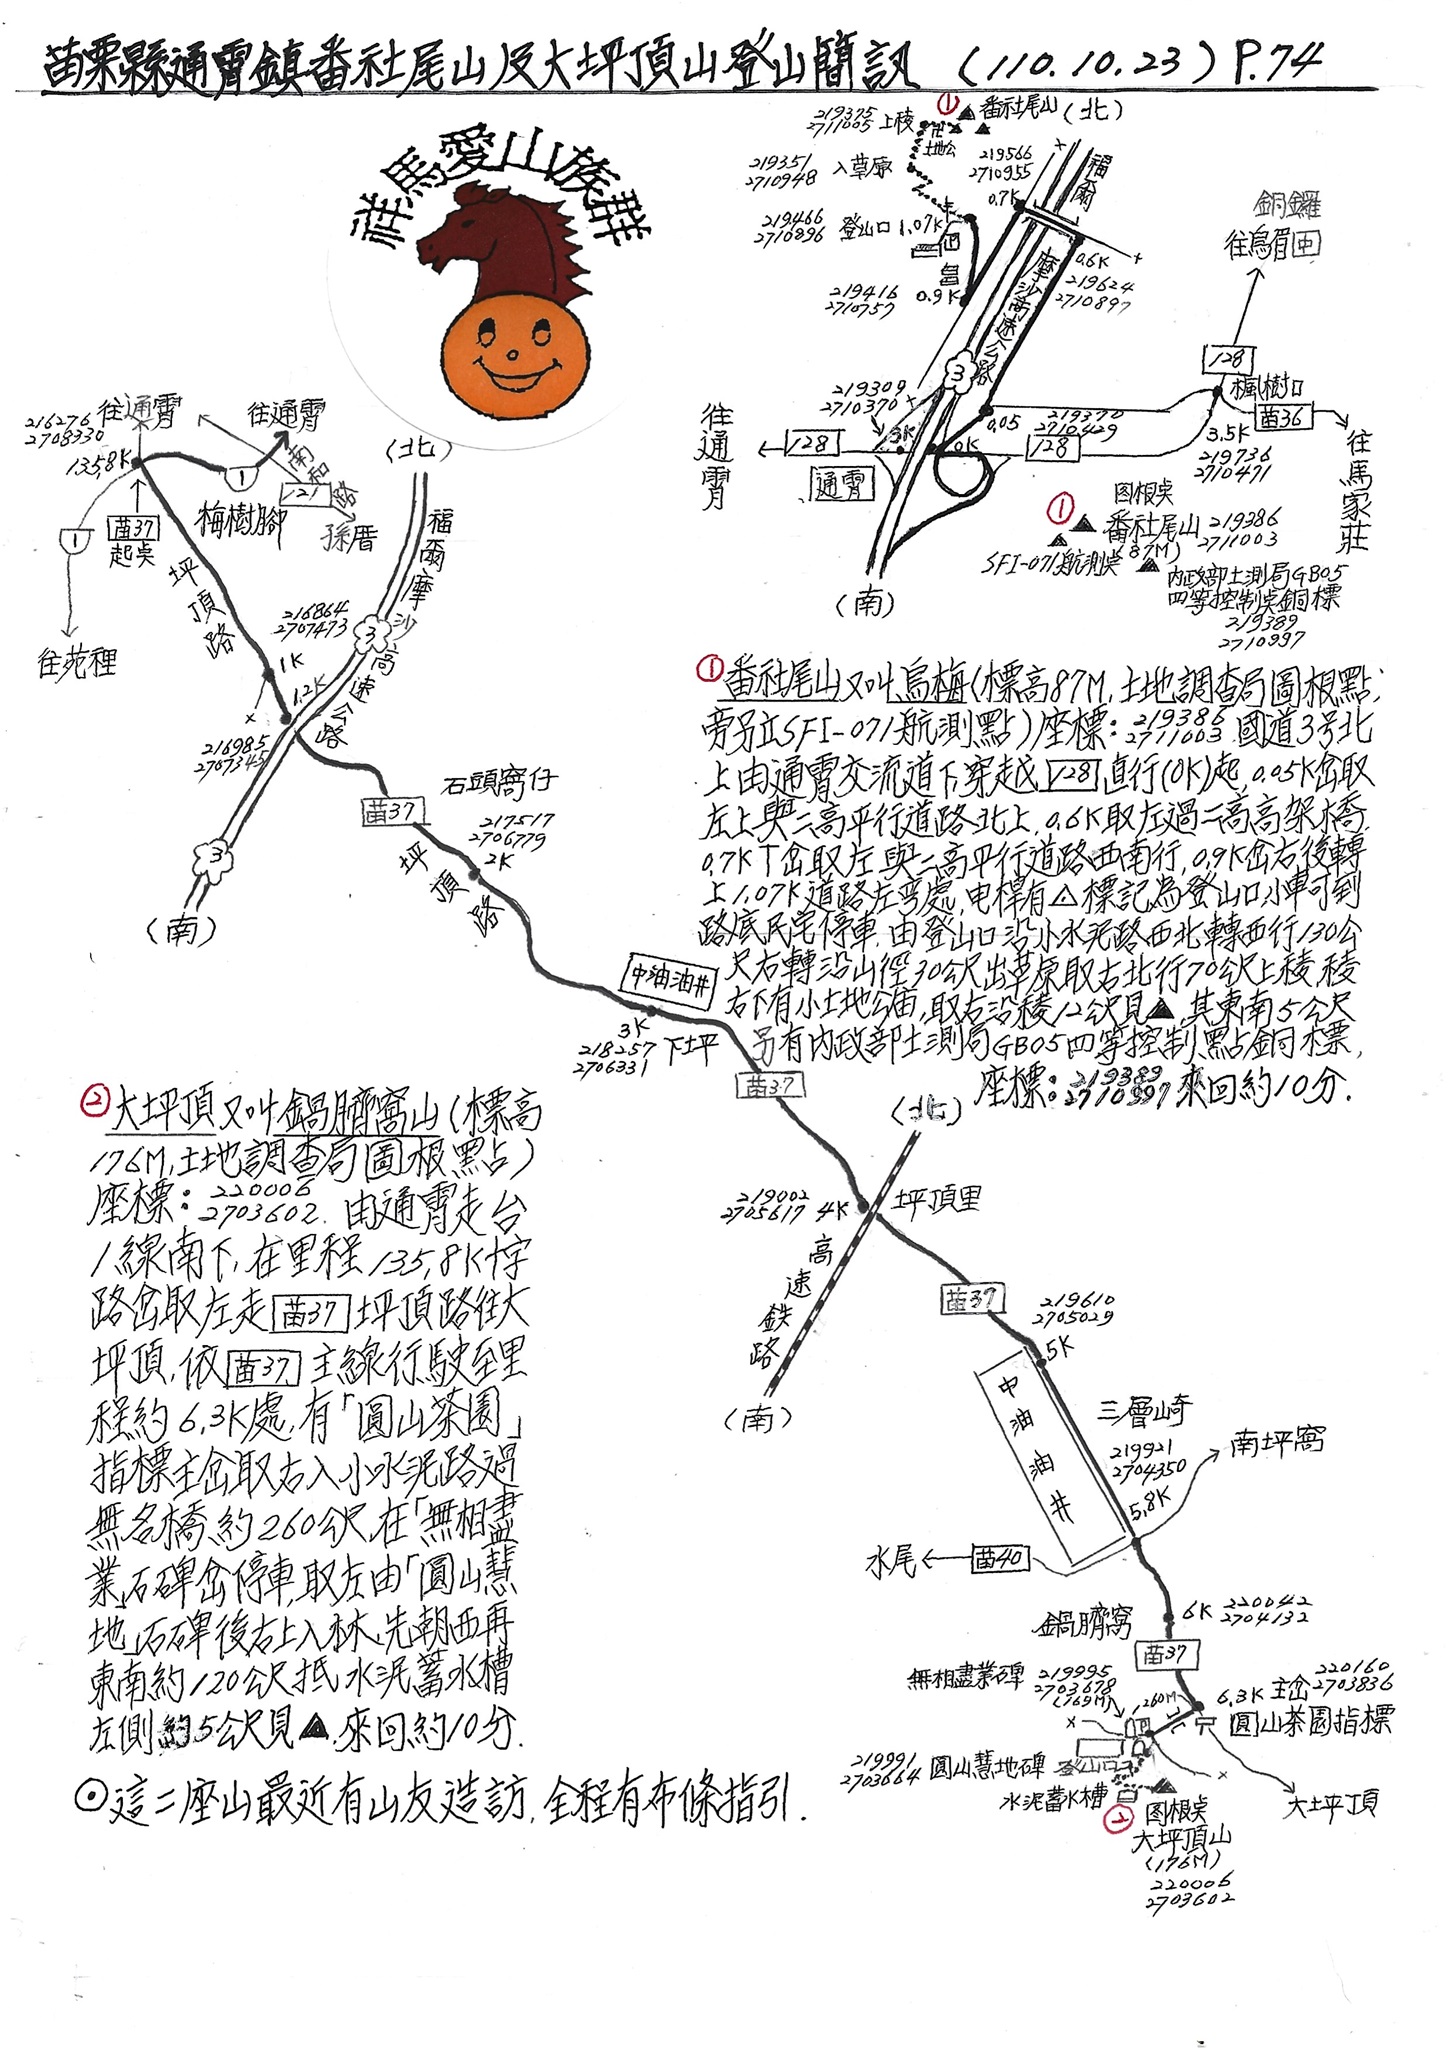 苗栗縣通霄鎮番社尾山及大坪頂山登山簡訊 (110.10.23) P.74
祥馬愛山族群
① 番社尾山 (北)
219375
2711005 上稜
土地公
219351
2710948 入草原
219566
2710955
0.7K
福爾
摩沙高速公路
3
219466
2710896 登山口 1.07K
219416
2710757 0.9K
0.6K
219624
2710897
銅鑼
往烏眉
128
楓樹口
苗36
往馬家莊
3.5K
219736
2710471
219309
2710370
0.05
219370
2710429
128
0K
128
往通霄
通霄
(南)
① 图根奌
番社尾山 219386
2711003
(87M)
SFI-071航測奌
內政部土測局GB05
四等控制奌銅標
219389
2710997
216276
2708930
往通霄
往通霄
135,8K
1
南和路
121
孫厝
梅樹腳
苗37
起奌
1
往苑裡
坪頂路
(北)
福爾摩沙高速公路
3
3
216864
2707473
1K
1,2K
216985
2707345
(南)
苗37
石頭窩仔
217517
2706779
2K
坪頂路
中油油井
3K
218257
2706331
下坪
苗37
(北)
219002
2705617 4K
坪頂里
高速鉄路
(南)
苗37
219610
2705029
5K
中油油井
三層崎
219921
2704350
5,8K
南坪窩
水尾
苗40
鍋臍窩
6K 220042
2704132
苗37
無相盡業碑 219995
2703678
(169M)
260M
6,3K 主岔 220160
2703836
圓山茶園指標
219991
2703664 圓山慧地碑
登山口
水泥蓄水槽
大坪頂
② 图根奌
大坪頂山
(176M)
220006
2703602
① 番社尾山又叫烏梅(標高87M,土地調查局圖根點;
旁另立SFI-071航測點)座標:219386
2711003 國道3号北
上由通霄交流道下穿越128直行(0K)起,0.05K岔取
左上與二高平行道路北上,0,6K取左過二高高架橋,
0,7K丁岔取左與二高平行道路西南行,0,9K岔右後轉
上1,07K道路左弯處,电桿有△標記為登山口,小車可到
路底民宅停車,由登山口沿小水泥路西北轉西行130公
尺右轉沿山徑30公尺出草原取右北行70公尺上稜,稜
右下有小土地公庙,取右沿稜12公尺見▲,其東南5公尺
另有內政部土測局GB05四等控制點銅標,
座標:219389
2710997 來回約10分.
② 大坪頂又叫鍋臍窩山(標高
176M,土地調查局圖根點)
座標:220006
2703602. 由通霄走台
1線南下,在里程135,8K十字
路岔取左走苗37坪頂路往大
坪頂,依苗37主線行駛至里
程約6,3K處,有「圓山茶園」
指標主岔取右入小水泥路過
無名橋約260公尺,在「無相盡
業」石碑岔停車,取左由「圓山慧
地」石碑後右上入林,先朝西再
東南約120公尺抵水泥蓄水槽
左側約5公尺見▲.來回約10分.
⊙這二座山最近有山友造訪,全程有布條指引.